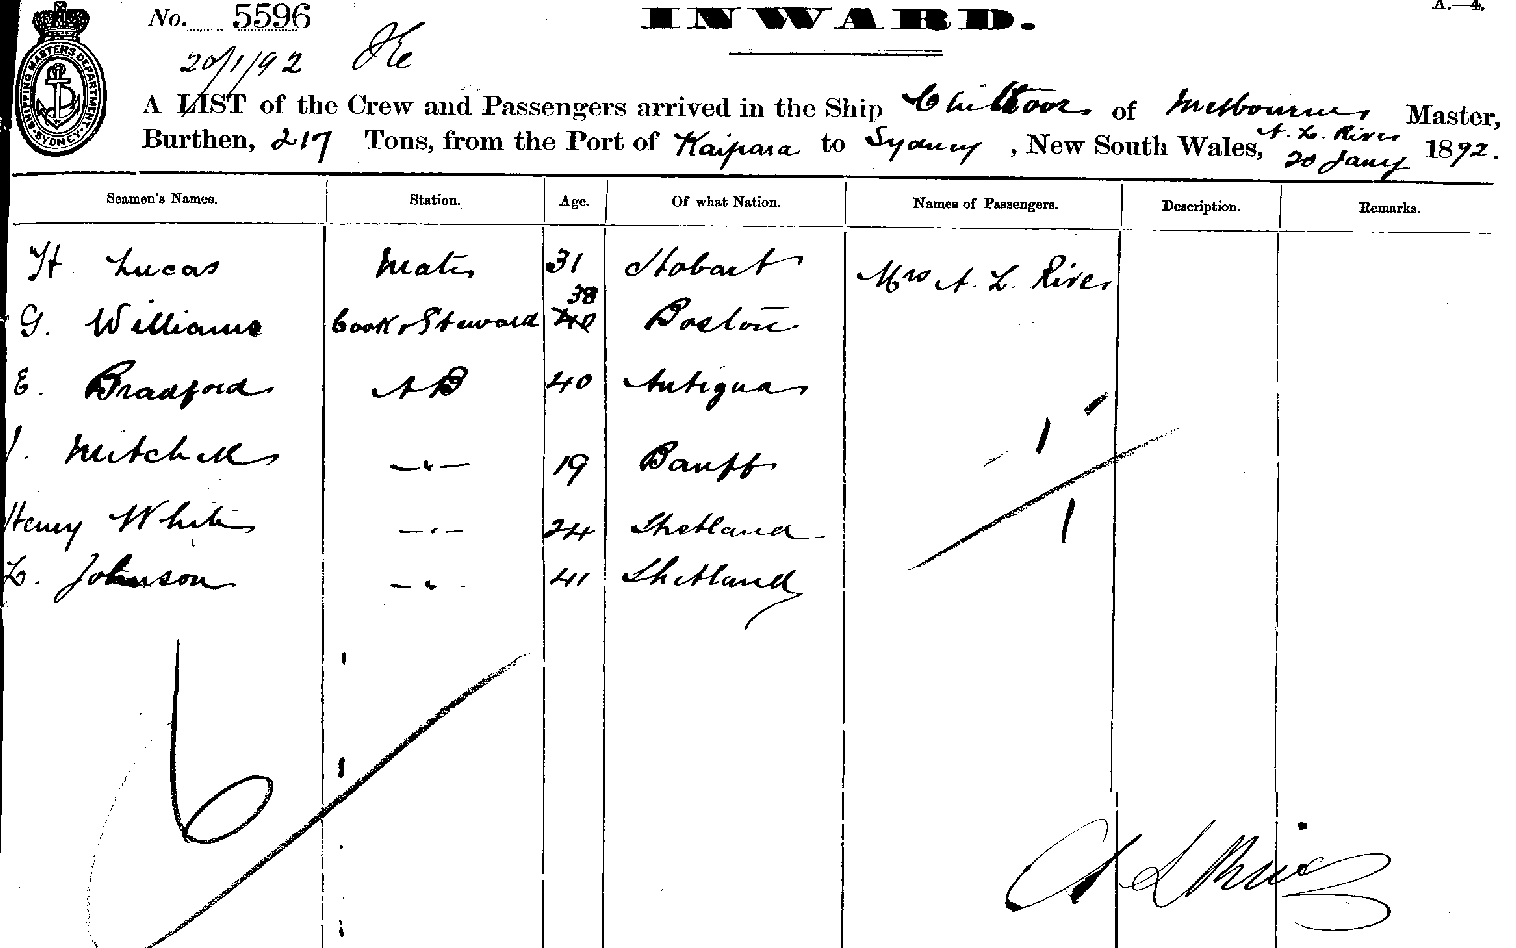 No. 5596
INWARD.
A.—4.
20/1/92
A LIST of the Crew and Passengers arrived in the Ship Chittoor of Melbourne Master,
A. L. River
Burthen, 217 Tons, from the Port of Kaipara to Sydney, New South Wales, 20 Jany 1892.
SHIPPING MASTERS DEPARTMENT SYDNEY
Seamen's Names. Station. Age. Of what Nation. Names of Passengers. Description. Remarks.
H Lucas Mate 31 Hobart Mrs A. L. River
38
G. Williams Cook & Steward 40 Boston
E. Bradford AB 40 Antigua
J. Mitchell —"— 19 Banff
1
Henry White —"— 24 Shetland
1
L. Johnson —"— 41 Shetland
6
A L River